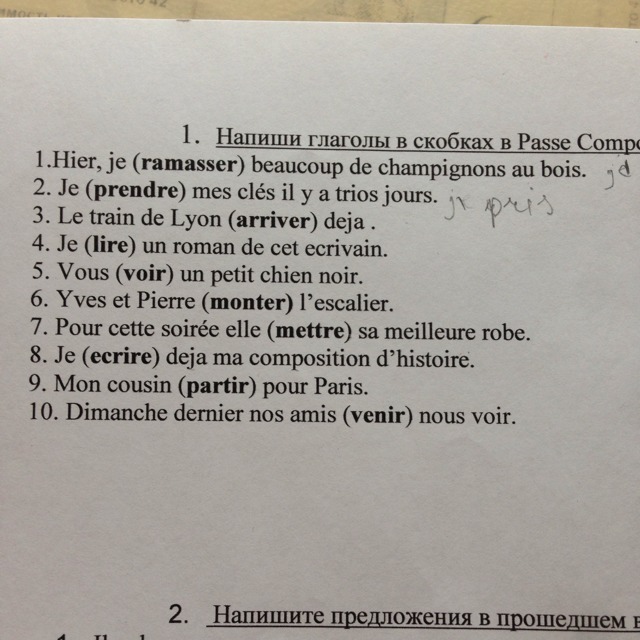 1. Напиши глаголы в скобках в Passe Compo
1.Hier, je (ramasser) beaucoup de champignons au bois.
2. Je (prendre) mes clés il y a trios jours. pris
3. Le train de Lyon (arriver) deja .
4. Je (lire) un roman de cet ecrivain.
5. Vous (voir) un petit chien noir.
6. Yves et Pierre (monter) l’escalier.
7. Pour cette soirée elle (mettre) sa meilleure robe.
8. Je (ecrire) deja ma composition d’histoire.
9. Mon cousin (partir) pour Paris.
10. Dimanche dernier nos amis (venir) nous voir.
2. Напишите предложения в прошедшем в